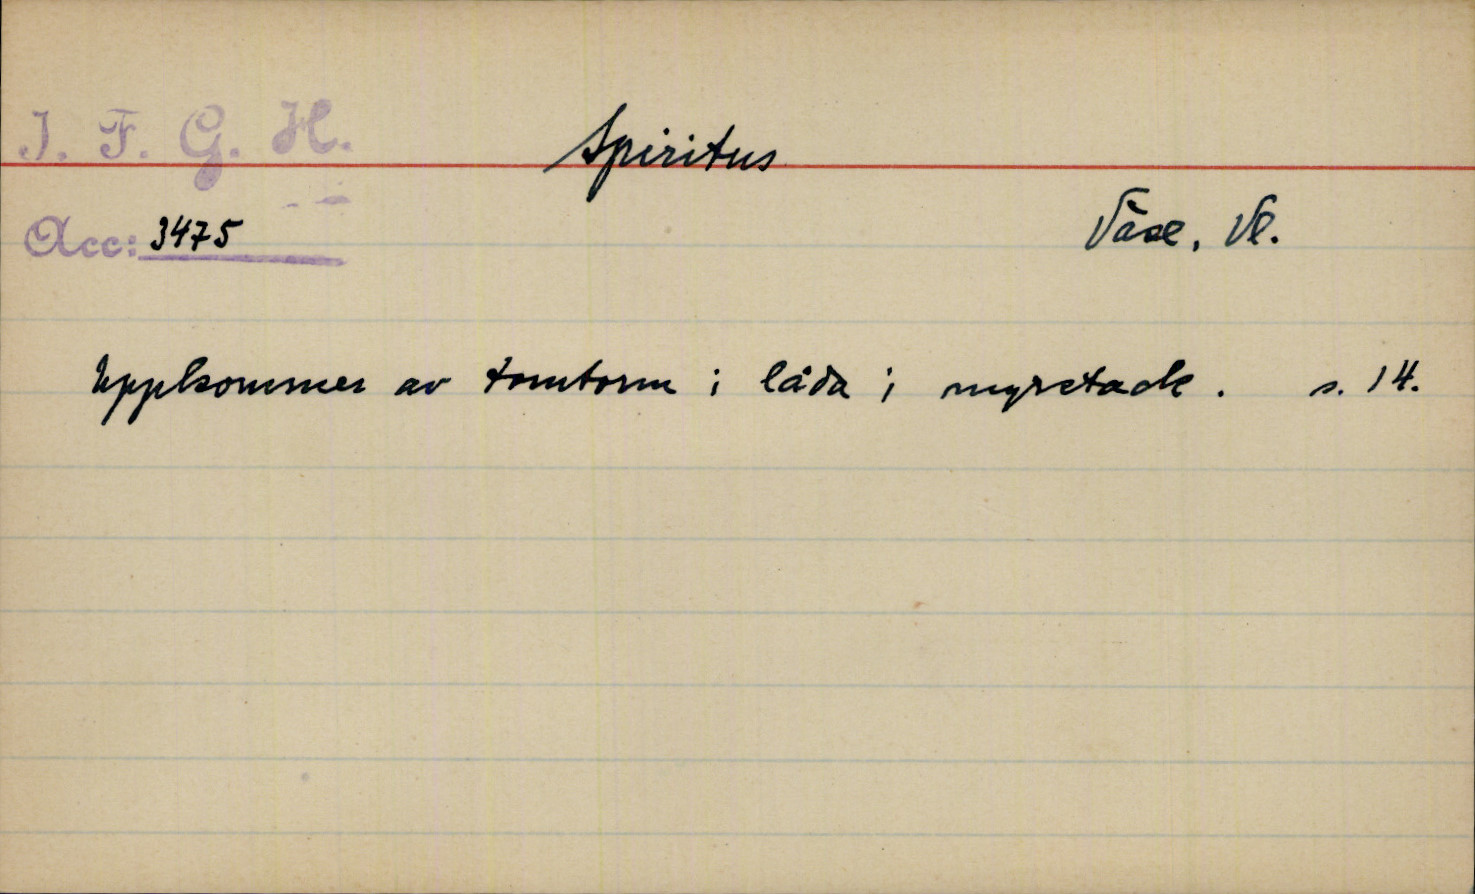 I. F. G. H.
Spiritus
Acc: 3475
Väse, Vl.
Uppkommer av tomtorm i låda i myrstack. s. 14.